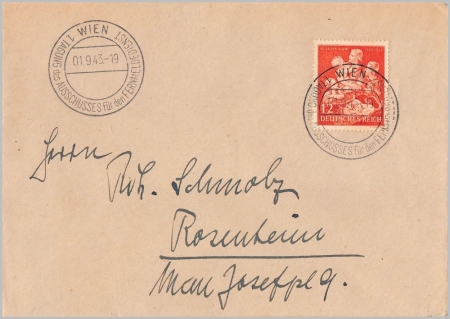 WIEN
1. TAGUNG des AUSSCHUSSES für den FERNMELDEDIENST
01.9.43.-19
WIEN
AUSSCHUSSES für den
12
DEUTSCHES REICH
Herrn
Rosenheim
Max Josefpl 9.